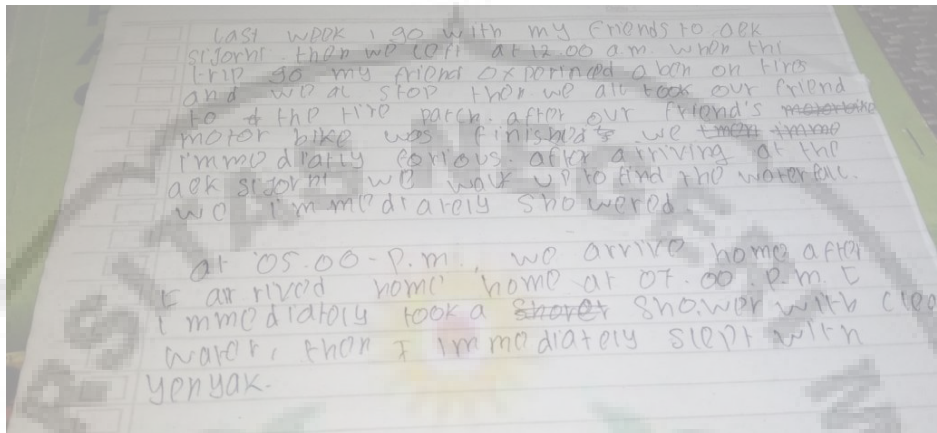 Last week i go with my friends to aek
sijorni. then we left at 12.00 a.m. when the
trip go my friend experinced a ben on tires
and we al stop then we all took our friend
to the tire patch. after our friend's motorbike
motor bike was finished we then imme
immediatly after arriving at the
aek sijorni we walk up to find the waterfall.
we immediarely showered
at 05.00-P.m, we arrive home after
I arrived home home at 07.00.p.m I
immediatoly took a shorer shower with clea
water, then I immediately slept with
yenyak.
RSITAS NEGE
M